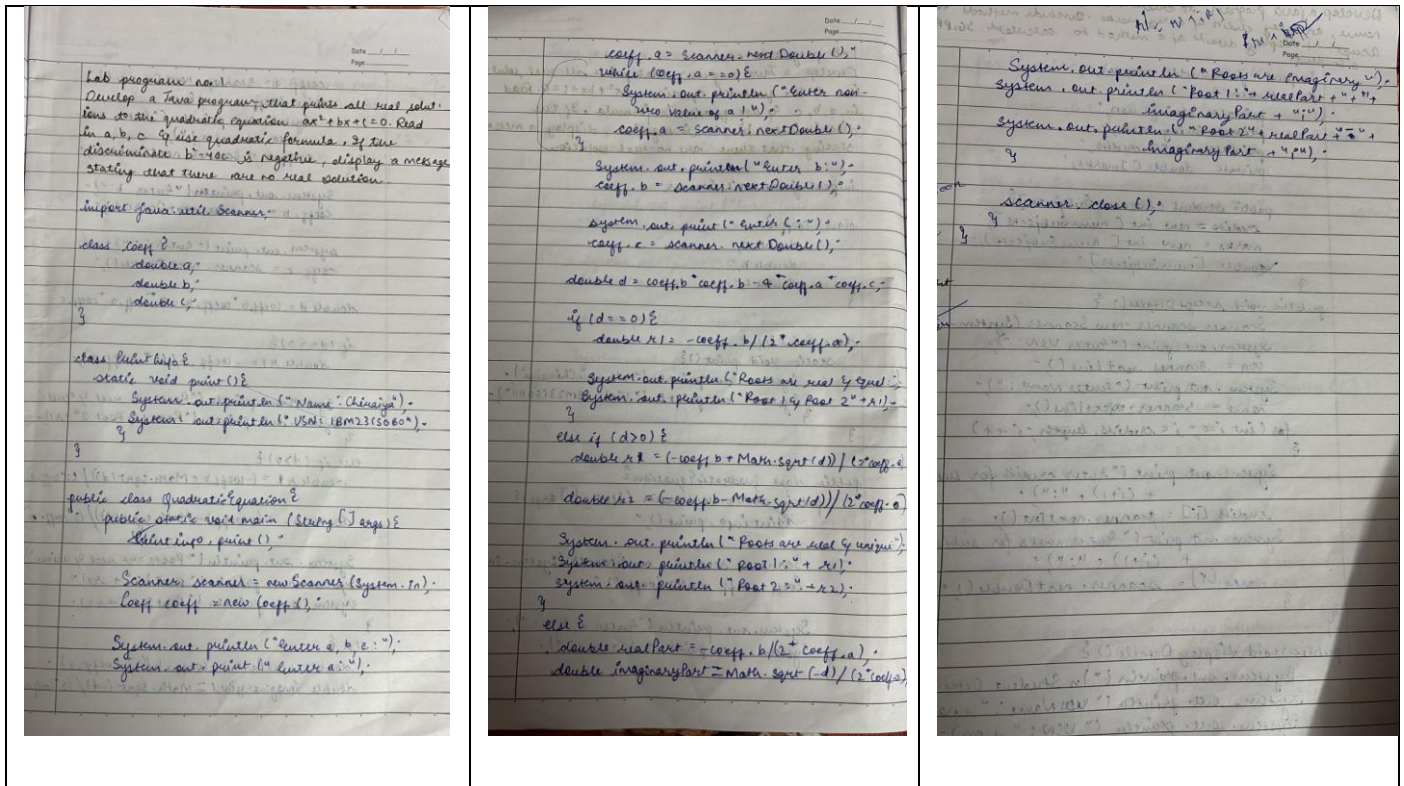 Date / /
Page
Lab program no. 1
Develop a Java program that prints all real solut-
ions to the quadratic equation ax²+bx+c=0. Read
in a, b, c & use quadratic formula. If the
discriminate b²-4ac is negative, display a message
stating that there are no real solution.
import java.util.Scanner;
class Coeff {
double a;
double b;
double c;
}
class PrintInfo {
static void print() {
System.out.println("Name: Chinaiya");
System.out.println("USN: 1BM23CS080");
}
}
public class QuadraticEquation {
public static void main (String [] args) {
PrintInfo.print();
Scanner scanner = new Scanner (System.in);
Coeff coeff = new Coeff();
System.out.println ("Enter a, b, c:");
System.out.print (" Enter a: ");
Date / /
Page
coeff.a = Scanner.nextDouble();
while (coeff.a == 0) {
System.out.println ("Enter non-
zero value of a!");
coeff.a = scanner.nextDouble();
}
System.out.println ("Enter b:");
coeff.b = scanner.nextDouble();
System.out.print ("Enter c:");
coeff.c = scanner.nextDouble();
double d = coeff.b*coeff.b - 4*coeff.a*coeff.c;
if (d==0) {
double r1 = -coeff.b/(2*coeff.a);
System.out.println ("Roots are real & equal:
System.out.println ("Root 1 & Root 2"+r1);
}
else if (d>0) {
double r1 = (-coeff b + Math.sqrt(d)) / (2*coeff.a)
double r2 = (-coeff.b - Math.sqrt(d)) / (2*coeff.a)
System.out.println ("Roots are real & unique");
System.out.println ("Root 1:" + r1);
System.out.println ("Root 2: + r2);
}
else {
double realPart = -coeff.b/(2*coeff.a);
double imaginaryPart = Math.sqrt (-d) / (2*coeff.a)
Date / /
Page
System.out.println ("Roots are imaginary");
System.out.println ("Root 1:" + realPart + "+" +
imaginaryPart + "i");
System.out.println ("Root 2" + realPart + "-" +
imaginaryPart + "i");
}
scanner.close();
}
}